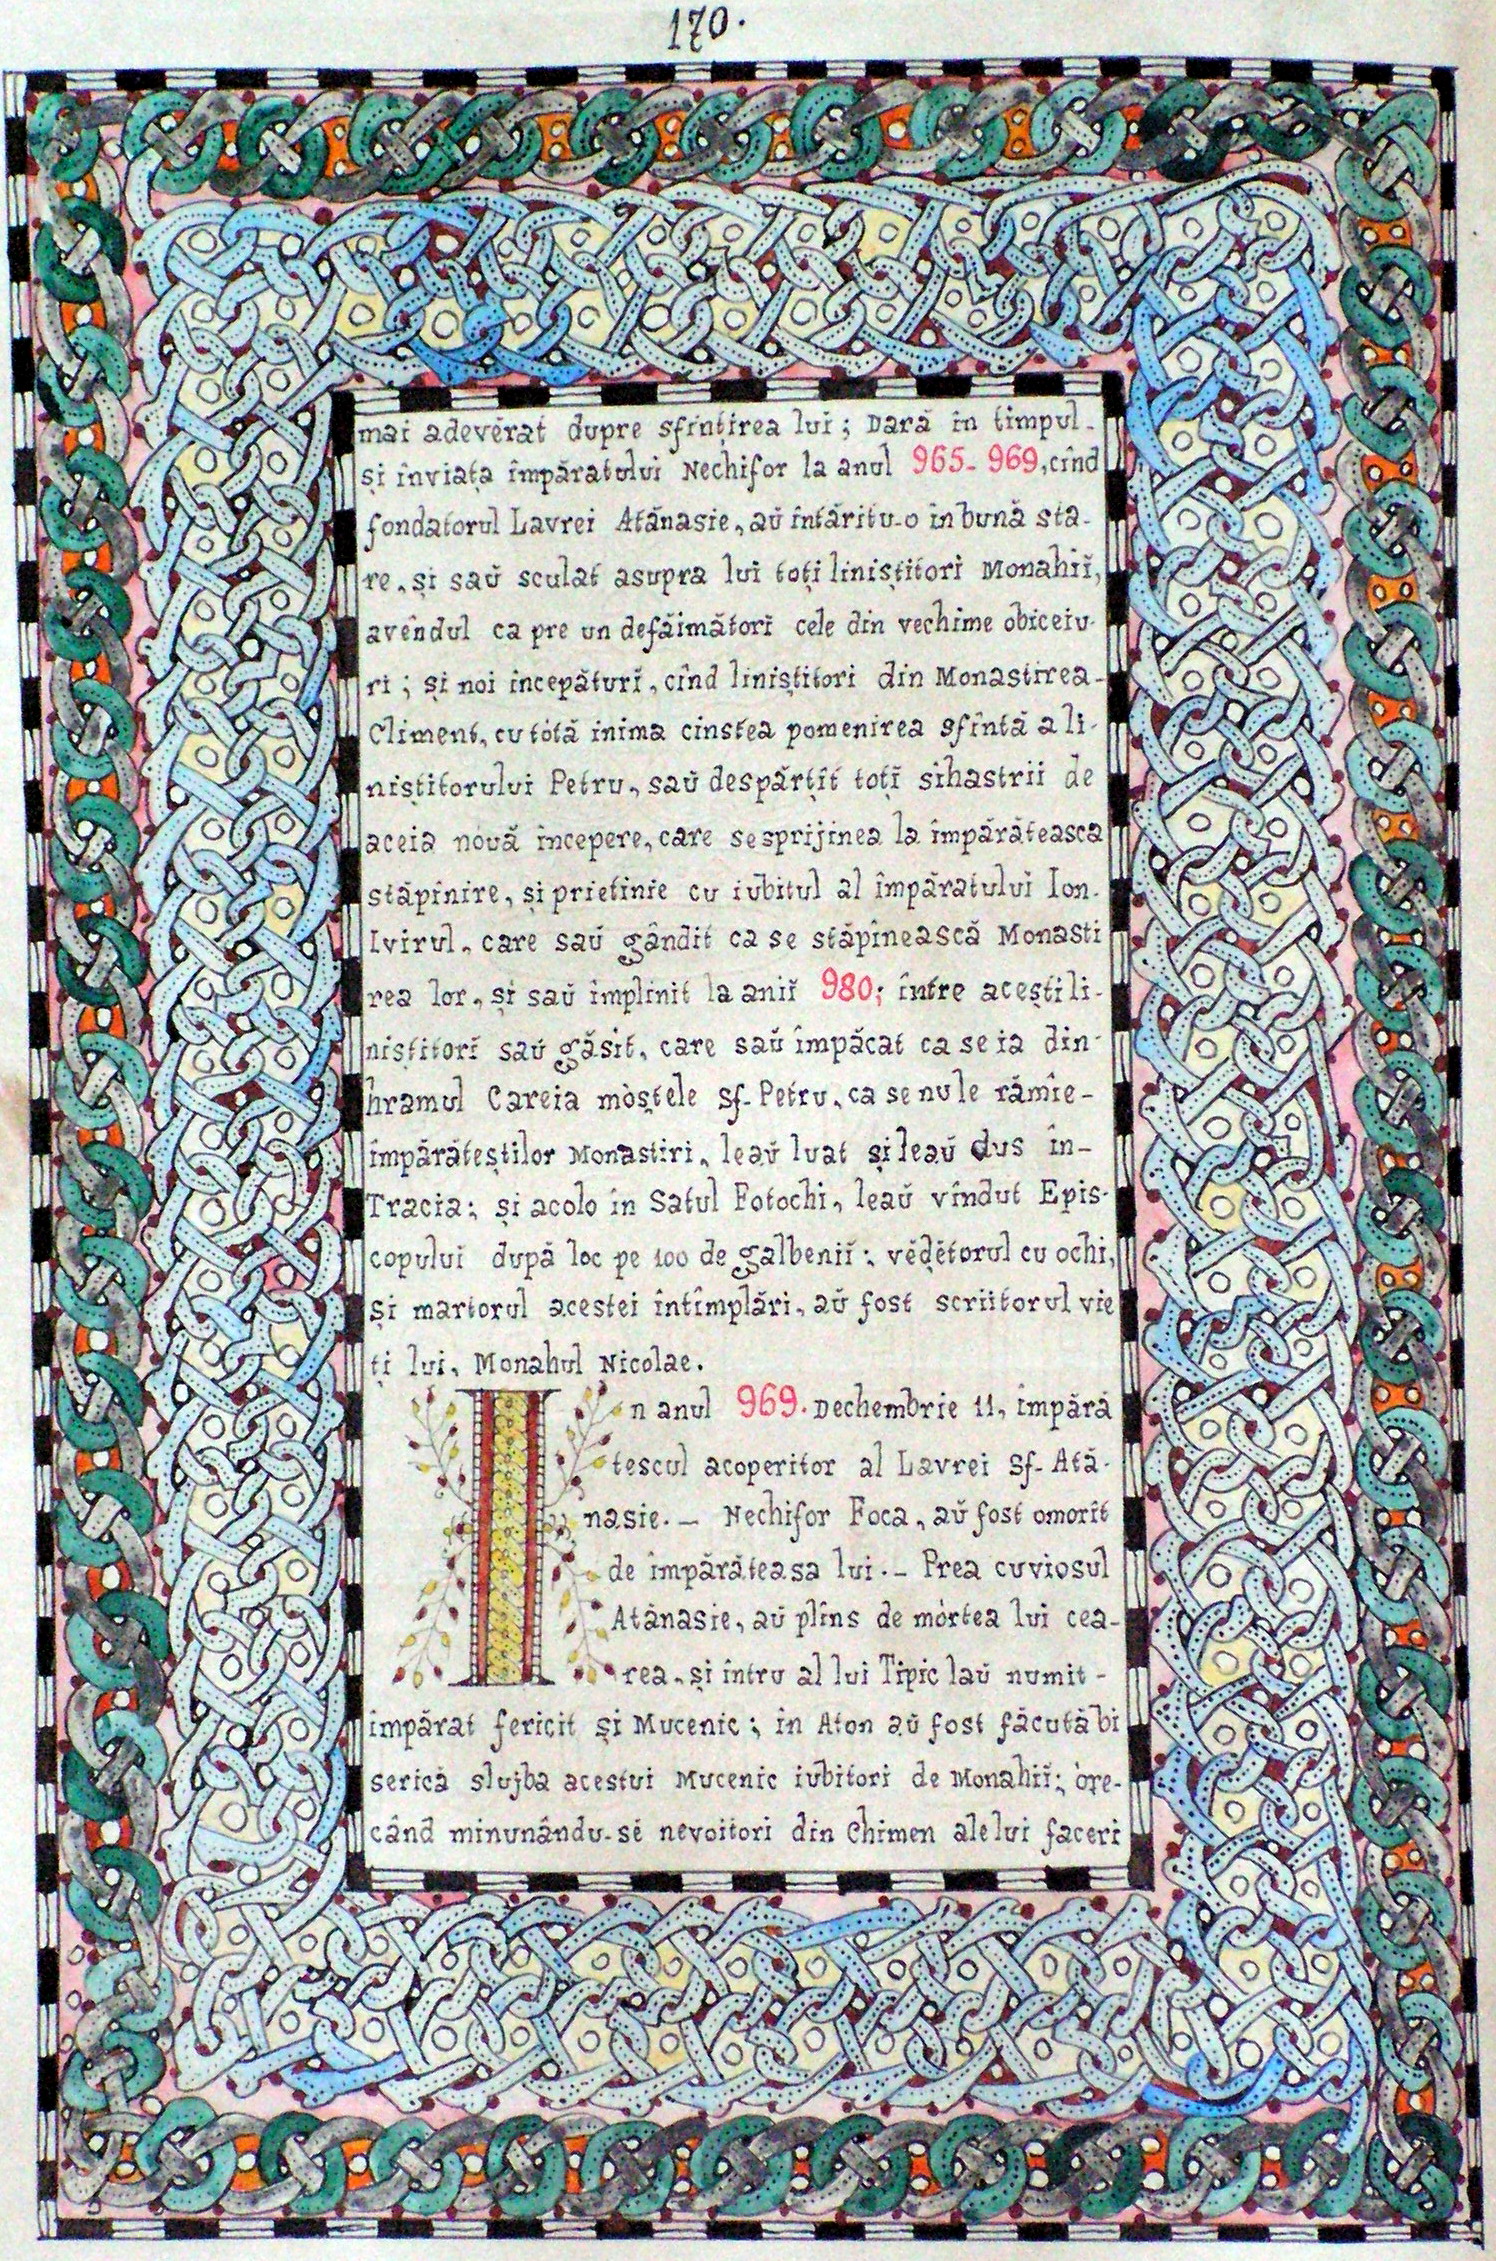 170.
mai adevĕrat dupre sfințirea lui; Dară în timpul-
și înviața împăratului Nechifor la anul 965-969, cînd
fondatorul Lavrei Atănasie, aŭ întăritu-o în bună sta-
re, și saŭ sculat asupra lui toți liniștitori Monahiĭ,
avêndul ca pre un defăimătorĭ cele din vechime obiceiu-
ri; și noi începăturĭ, cînd liniștitori din Monastirea-
Climent, cu totă inima cinstea pomenirea sfîntă a li-
niștitorului Petru, saŭ despărțit toțĭ sihastrii de
aceia nouă începere, care se sprijinea la împărăteasca
stăpînire, și prietinie cu iubitul al împăratului Ion-
Ivirul, care saŭ gândit ca se stăpînească Monasti
rea lor, și saŭ împlinit la aniĭ 980; între acești li-
niștitorĭ saŭ găsit, care saŭ împăcat ca se ia din-
hramul Careia mòștele sf- Petru, ca se nu le rămîe-
împărăteștilor Monastiri, leaŭ luat și leaŭ dus în-
Tracia; și acolo în Satul Fotochi, leaŭ vîndut Epis-
copului după loc pe 100 de galbeniĭ; vĕḑĕtorul cu ochi,
și martorul acestei întîmplări, aŭ fost scriitorul vie
ți lui, Monahul Nicolae.
In anul 969. Dechembrie 11, împără
tescul acoperitor al Lavrei Sf- Ată-
nasie.- Nechifor Foca, aŭ fost omorît
de împărăteasa lui.- Prea cuviosul
Atănasie, aŭ plîns de mòrtea lui cea-
rea, și întru al lui Tipic laŭ numit-
împărat fericit și Mucenic; în Aton aŭ fost făcută bi
serică slujba acestui Mucenic iubitori de Monahiĭ; òre-
când minunându-sĕ nevoitori din Chimen ale lui faceri